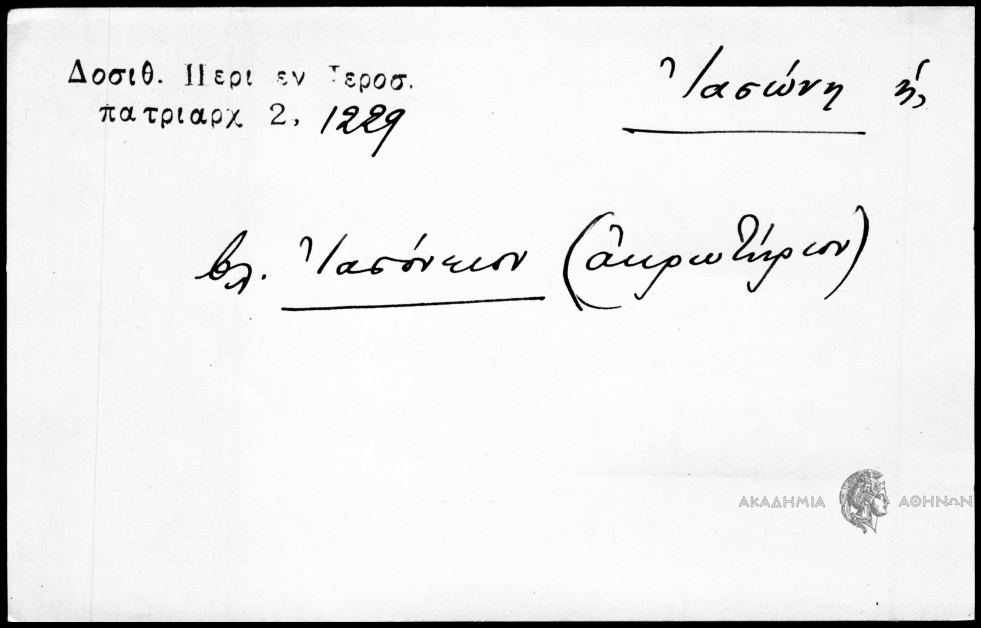 Δοσιθ. Περι εν Ιεροσ.
πατριαρχ 2, 1229
Ἰασώνη ἡ,
βλ. Ἰασόνειον (ἀκρωτήριον)
ΑΚΑΔΗΜΙΑ ΑΘΗΝΩΝ